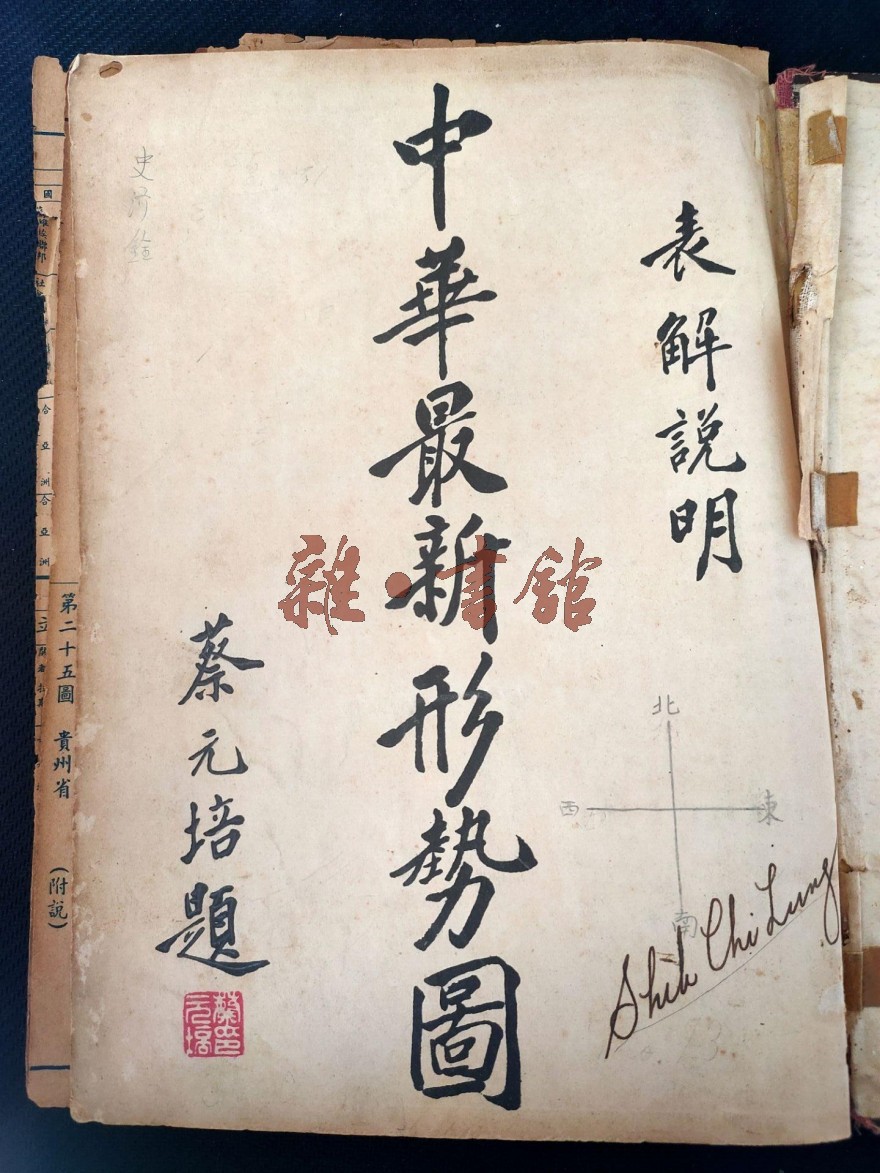 表解說明
中華最新形勢圖
蔡元培題
雜·書館
北
西
東
南
Shih Chi Lung
第二十五圖 貴州省 (附說)
國
合亞洲合亞洲